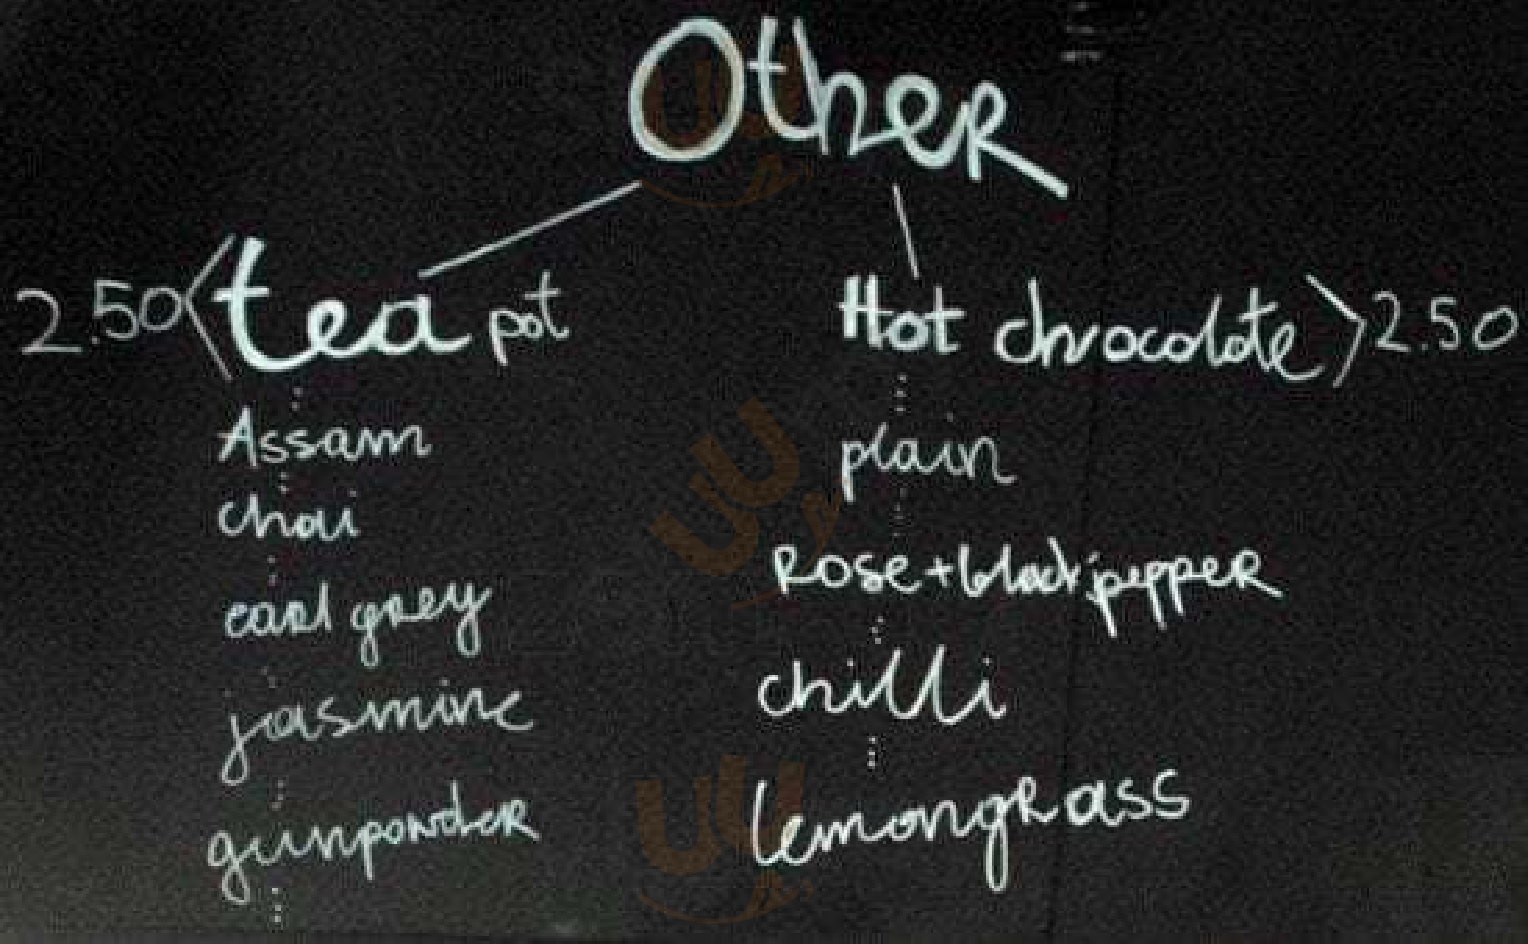 Other
2.50 tea pot
Assam
chai
earl grey
jasmine
gunpowder
Hot chrocolate 2.50
plain
Rose + black pepper
chilli
lemongrass